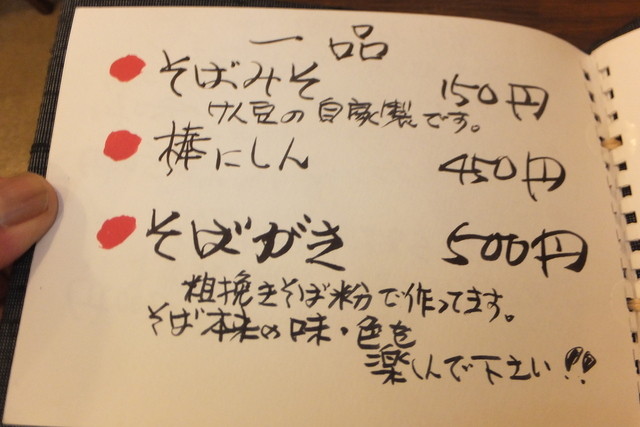 一品
そばみそ 150円
けん豆の自家製です。
棒にしん 450円
そばがき 500円
粗挽きそば粉で作ってます。
そば本来の味・色を
楽しんで下さい!!